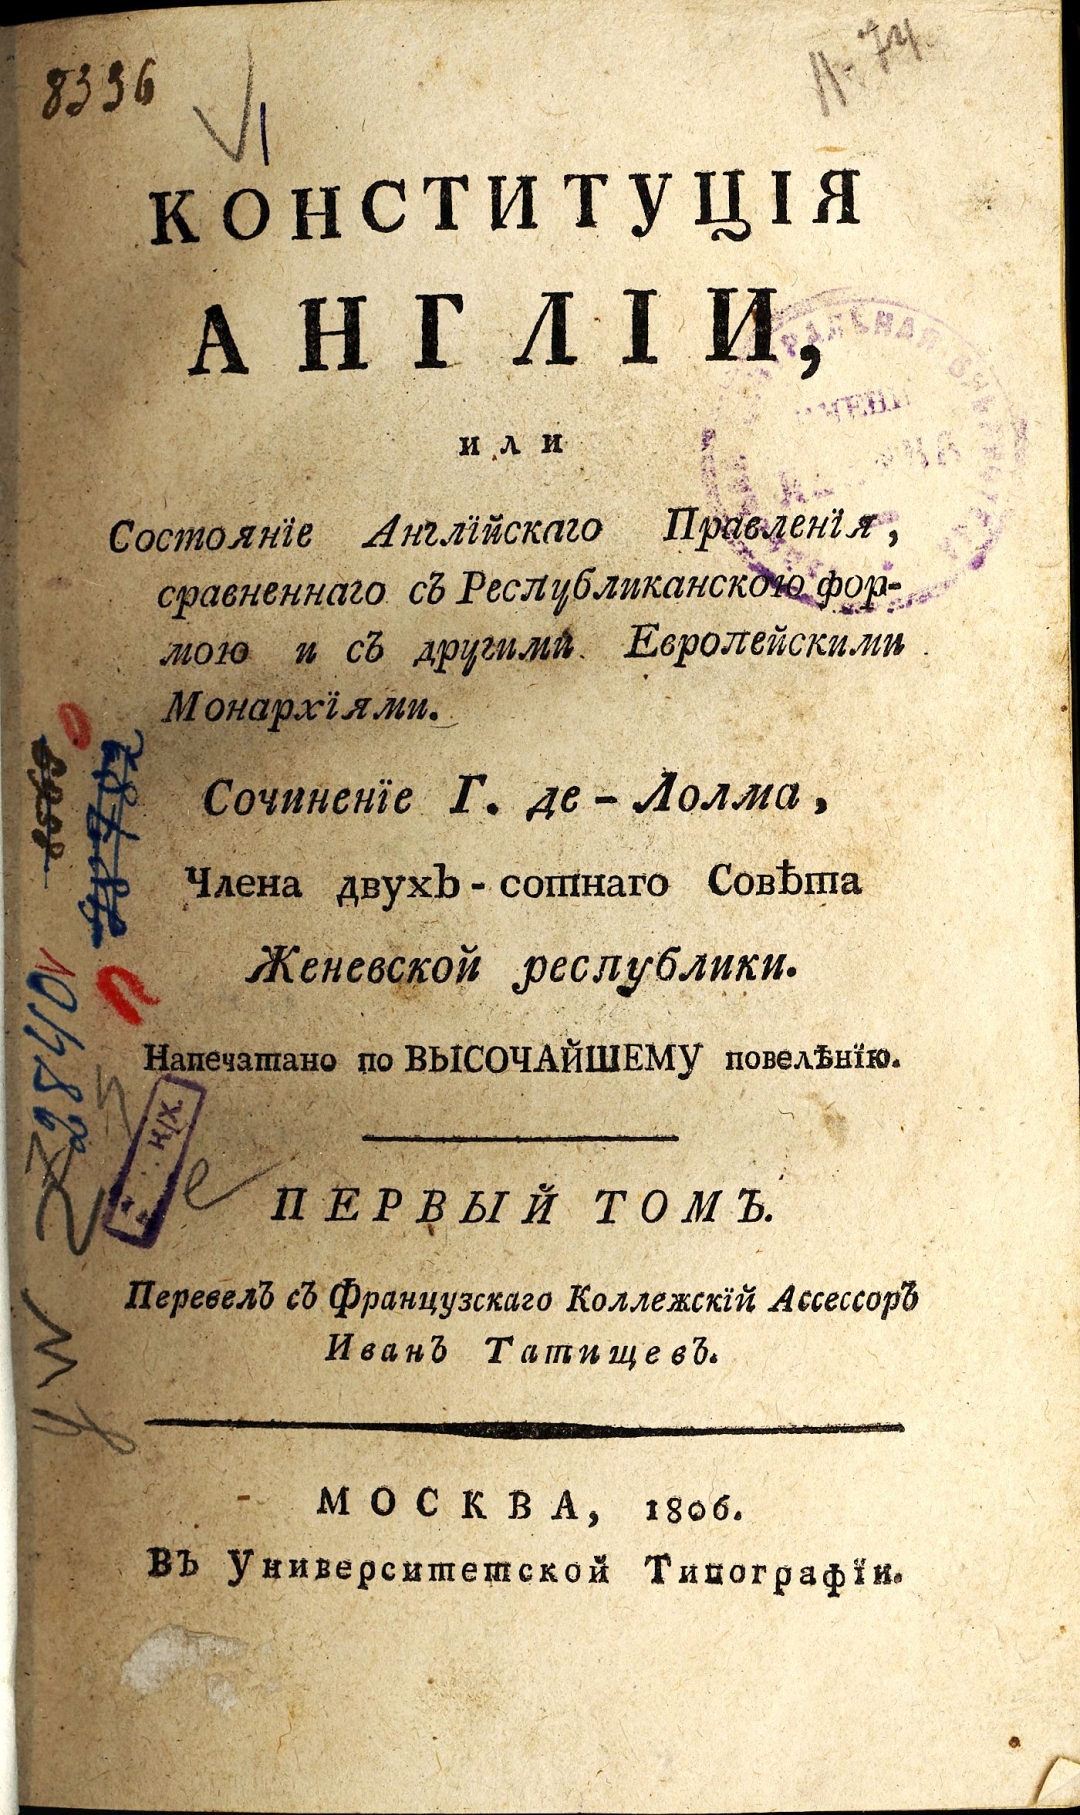 8336
КОНСТИТУЦІЯ
АНГЛІИ,
или
Состояніе Англійскаго Правленія,
сравненнаго съ Республиканскою фор-
мою и съ другими Европейскими
Монархіями.
Сочиненіе Г. де-Лолма,
Члена двухъ-сотнаго Совѣта
Женевской республики.
Напечатано по ВЫСОЧАЙШЕМУ повелѣнїю.
ПЕРВЫЙ ТОМЪ.
Перевелъ съ Французскаго Коллежскій Ассессоръ
Иванъ Татищевъ.
МОСКВА, 1806.
Въ Университетской Типографїи.